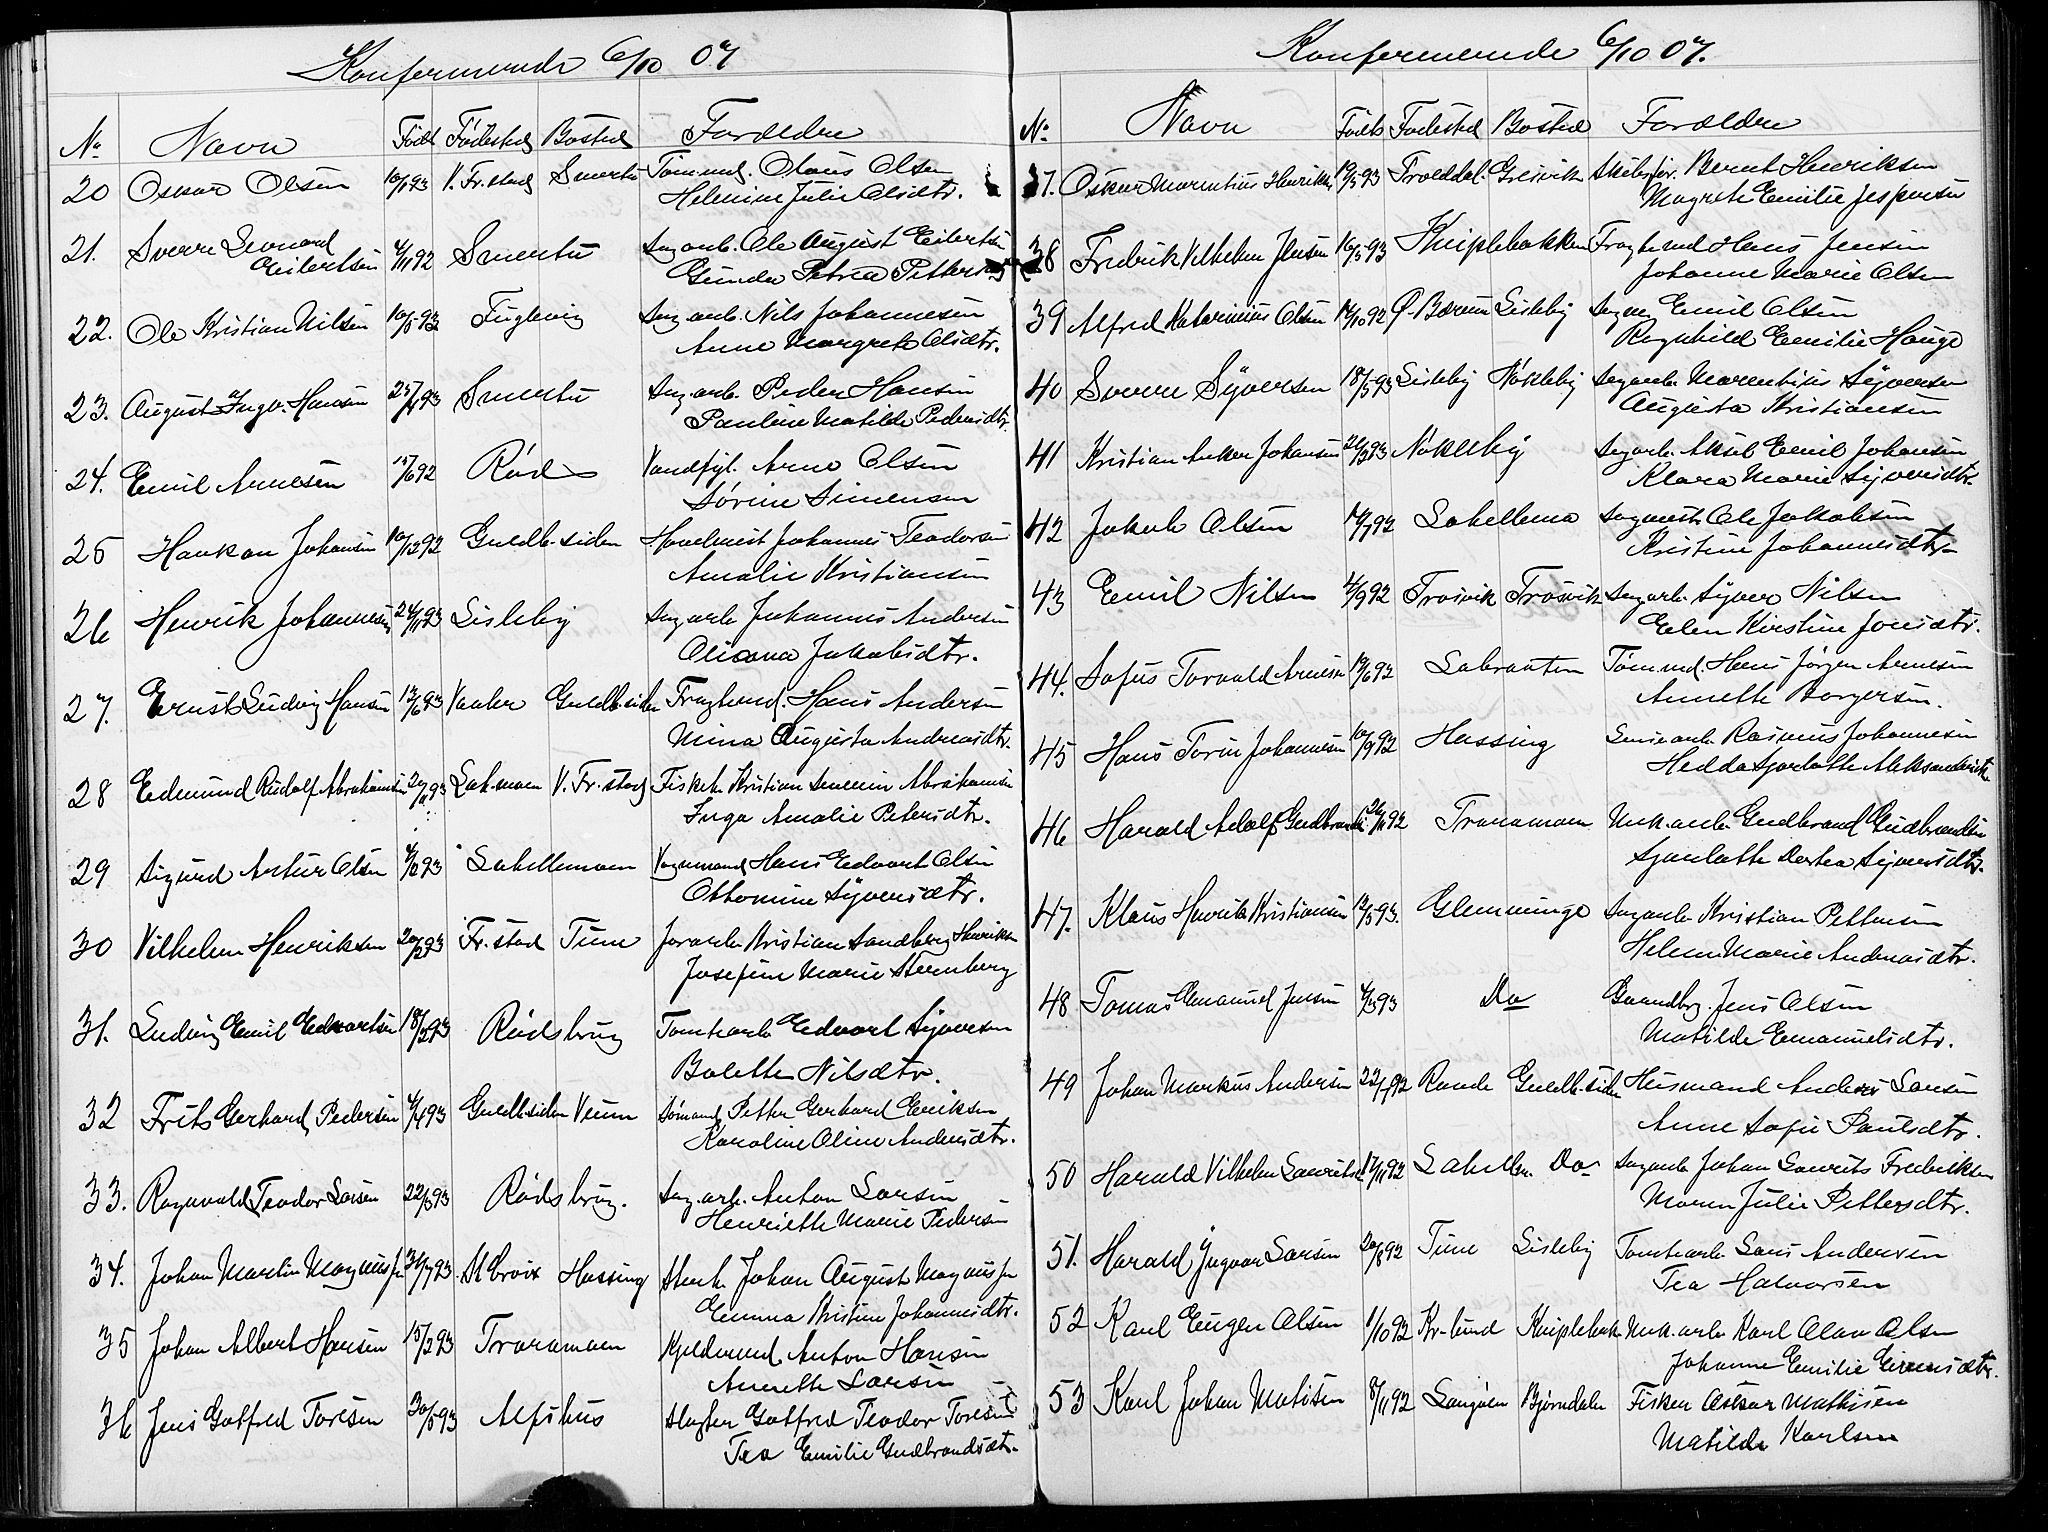 Konfermerende 6/10 07
No Navn Födt Födested Bosted Foreldre
20 Oskar Olsen 10/1 93 V. Fr.stad Smertu Tömmd. Olaus Olsen
Helenine Julie Olsdtr.
21. Sverre Leonard Eilertsen 4/11 92 Smertu Sagarb. Ole August Eilertsen
Gunda Petrea Pettersen
22. Ole Kristian Nilsen 10/5 93 Fuglevig Sagarb. Nils Johannesen
Anne Margrete Olsdtr.
23. August Ingv. Hansen 25/4 93 Smertu Sagarb. Peder Hansen
Pauline Matilde Pedersdtr.
24. Emil Arnesen 15/6 92 Röd Vandfgl. Arne Olsen
Sörine Simensen
25 Haakon Johansen 10/12 92 Guldb.siden Johannes Teodorsen
Amalie Kristiansen
26 Henrik Johannesen 24/11 93 Lisleby Sagarb Johannes Andersen
Oliana Jakobsdtr.
27. Ernst Ludvig Hansen 13/6 93 Vaaler Guldb.siden Fragtmd. Hans Andersen
Mina Augusta Andreasdtr.
28 Edmund Rudolf Abrahamsen 20/11 93 Lahmoen V. Fr.stad Fiskeh Kristian Severin Abrahamsen
Inga Amalie Petersdtr.
29 Sigurd Artur Olsen 4/2 93 Lahellemoen Vognmand Hans Edvart Olsen
Ottomine Syversdtr.
30 Vilhelm Henriksen 20/2 93 Fr.stad Tune Jernarb Kristian Sandberg Henriksen
Josefine Marie Sternberg
31. Ludvig Emil Edvartsen 18/2 93 Rödsbrug Tomtearb Edvart Syversen
Bolette Nilsdtr.
32 Frits Gerhard Pedersen 4/4 93 Guldb.siden Veum Sömand Petter Gerhard Eriksen
Karoline Oline Andersdtr.
33. Ragnvald Teodor Larsen 22/3 93 Rödsbrug. Sag.arb. Anton Larsen
Henriette Marie Pedersen
34. Johan Martin Magnussen 31/7 93 St Croix Hassing Stenh. Johan August Magnussen
Emma Kristine Johannesdtr.
35 Johan Albert Hansen 15/2 93 Traramoen Kjeldermd Anton Hansen
Annette Larsen
36 Jens Gotfred Toresen 30/5 93 Alfshus Slagter Gotfred Teodor Toresen
Tea Emilie Gudbrandsdtr.
Konfermerende 6/10 07.
No Navn Födts Fodested Bosted Forældre
37. Oskar Marentius Henriks 19/3 93 Troeddal. Gresvik Skibsför. Bernt Henriksen
Magrete Emilie Jespersen
38 Fredrik Vilhelm Jensen 16/5 93 Kniplebakken Fragtmd Hans Jensen
Johanne Marie Olsen
39 Alfred Katarinius Olsen 14/10 92 Ö. Bærum Lisleby Emil Olsen
Ragnhild Emilie Hauge
40 Sverre Syversen 18/5 93 Lisleby Nökleby Sagarb. Marentius Syversen
Augusta Kristiansen
41 Kristian Anker Johansen 26/3 93 Nökleby Sagarb. Aksel Emil Johansen
Klara Marie Syversdtr.
42 Jakob Olsen 14/7 92 Lahellemo Sagmest Ole Jakobsen
Kristine Johannesdtr.
43 Emil Nilsen 4/9 92 Trosvik Trosvik Sagarb. Syver Nilsen
Elen Kirstine Jonsdtr.
44. Sofus Torvald Arnesen 19/6 92 Labraaten Tömmd. Hans Jörgen Arnesen
Annette Borgersen.
45 Hans Torin Johannesen 10/9 92 Hassing Rasmus Johannesen
Hedda Sjarlotte Aleksandersdtr
46 Harald Adolf Gudbrands. 26/11 92 Traramoen Mek.arb. Gudbrand Gudbrandsen
Sjarlotte Dortea Syversdtr.
47. Klaus Henrik Kristiansen 12/5 93. Glemminge Sagarb Kristian Pettersen
Helene Marie Andreasdtr.
48 Tomas Emanuel Jensen 4/3 93 Do Gaardbg. Jens Olsen
Matilde Emanuelsdtr.
49 Johan Markus Andersen 22/7 92 Raade Guldb.siden Husmand Anders Larsen
Anne Sofie Paulsdtr.
50 Harald Vilhelm Lauritsen 17/11 92 Lahellem. Do Sagarb Johan Laurits Fredriksen
Maren Julie Pettersdtr.
51. Harald Ingvar Larsen 20/8 92 Tune Lisleby Tomtearb Lars Andersen
Tea Halvorsen
52 Karl Eugen Olsen 11/10 92 Kr-lund Kniplebak Mek.arb Karl Olav Olsen
Johanne Emilie Evensdtr.
53 Karl Johan Matisen 8/11 92 Langöen Björndalen Fisker Oskar Mathisen
Matilde Karlsen